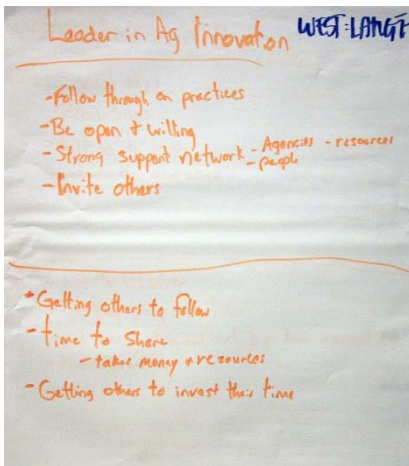 Leader in Ag Innovation
WEST:LARGE
-Follow through on practices
-Be open & willing
-Strong support network - Agencies - resources
- people
-Invite others
-Getting others to follow
-time to share
-takes money & resources
-Getting others to invest their time